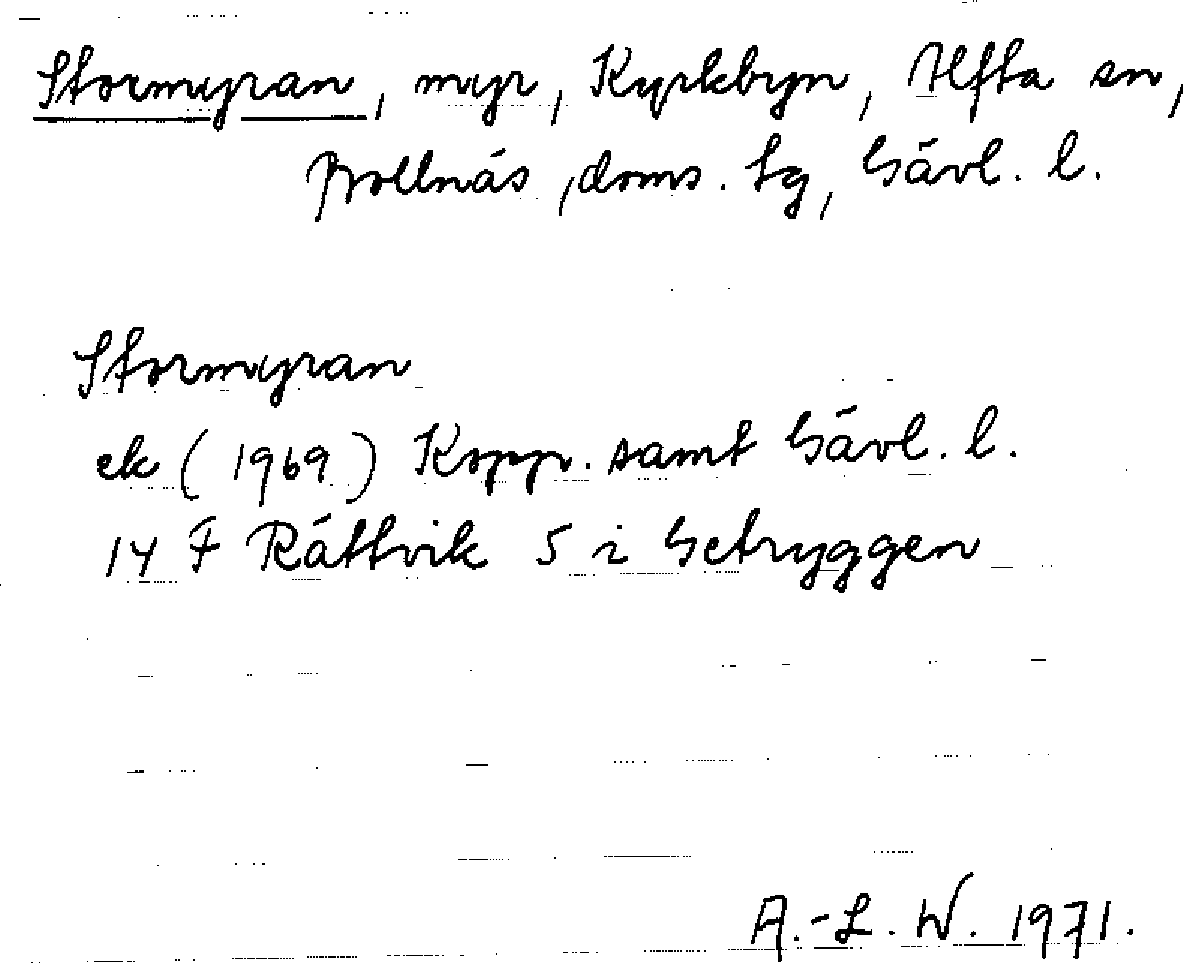 Stormyran, myr, Kyrkbyn, Alfta sn,
Bollnäs, doms. tg, Gävl. l.
Stormyran
ek (1969) Kopp. samt Gävl. l.
14 F Rättvik 5 i Getryggen
A.-L. W. 1971.